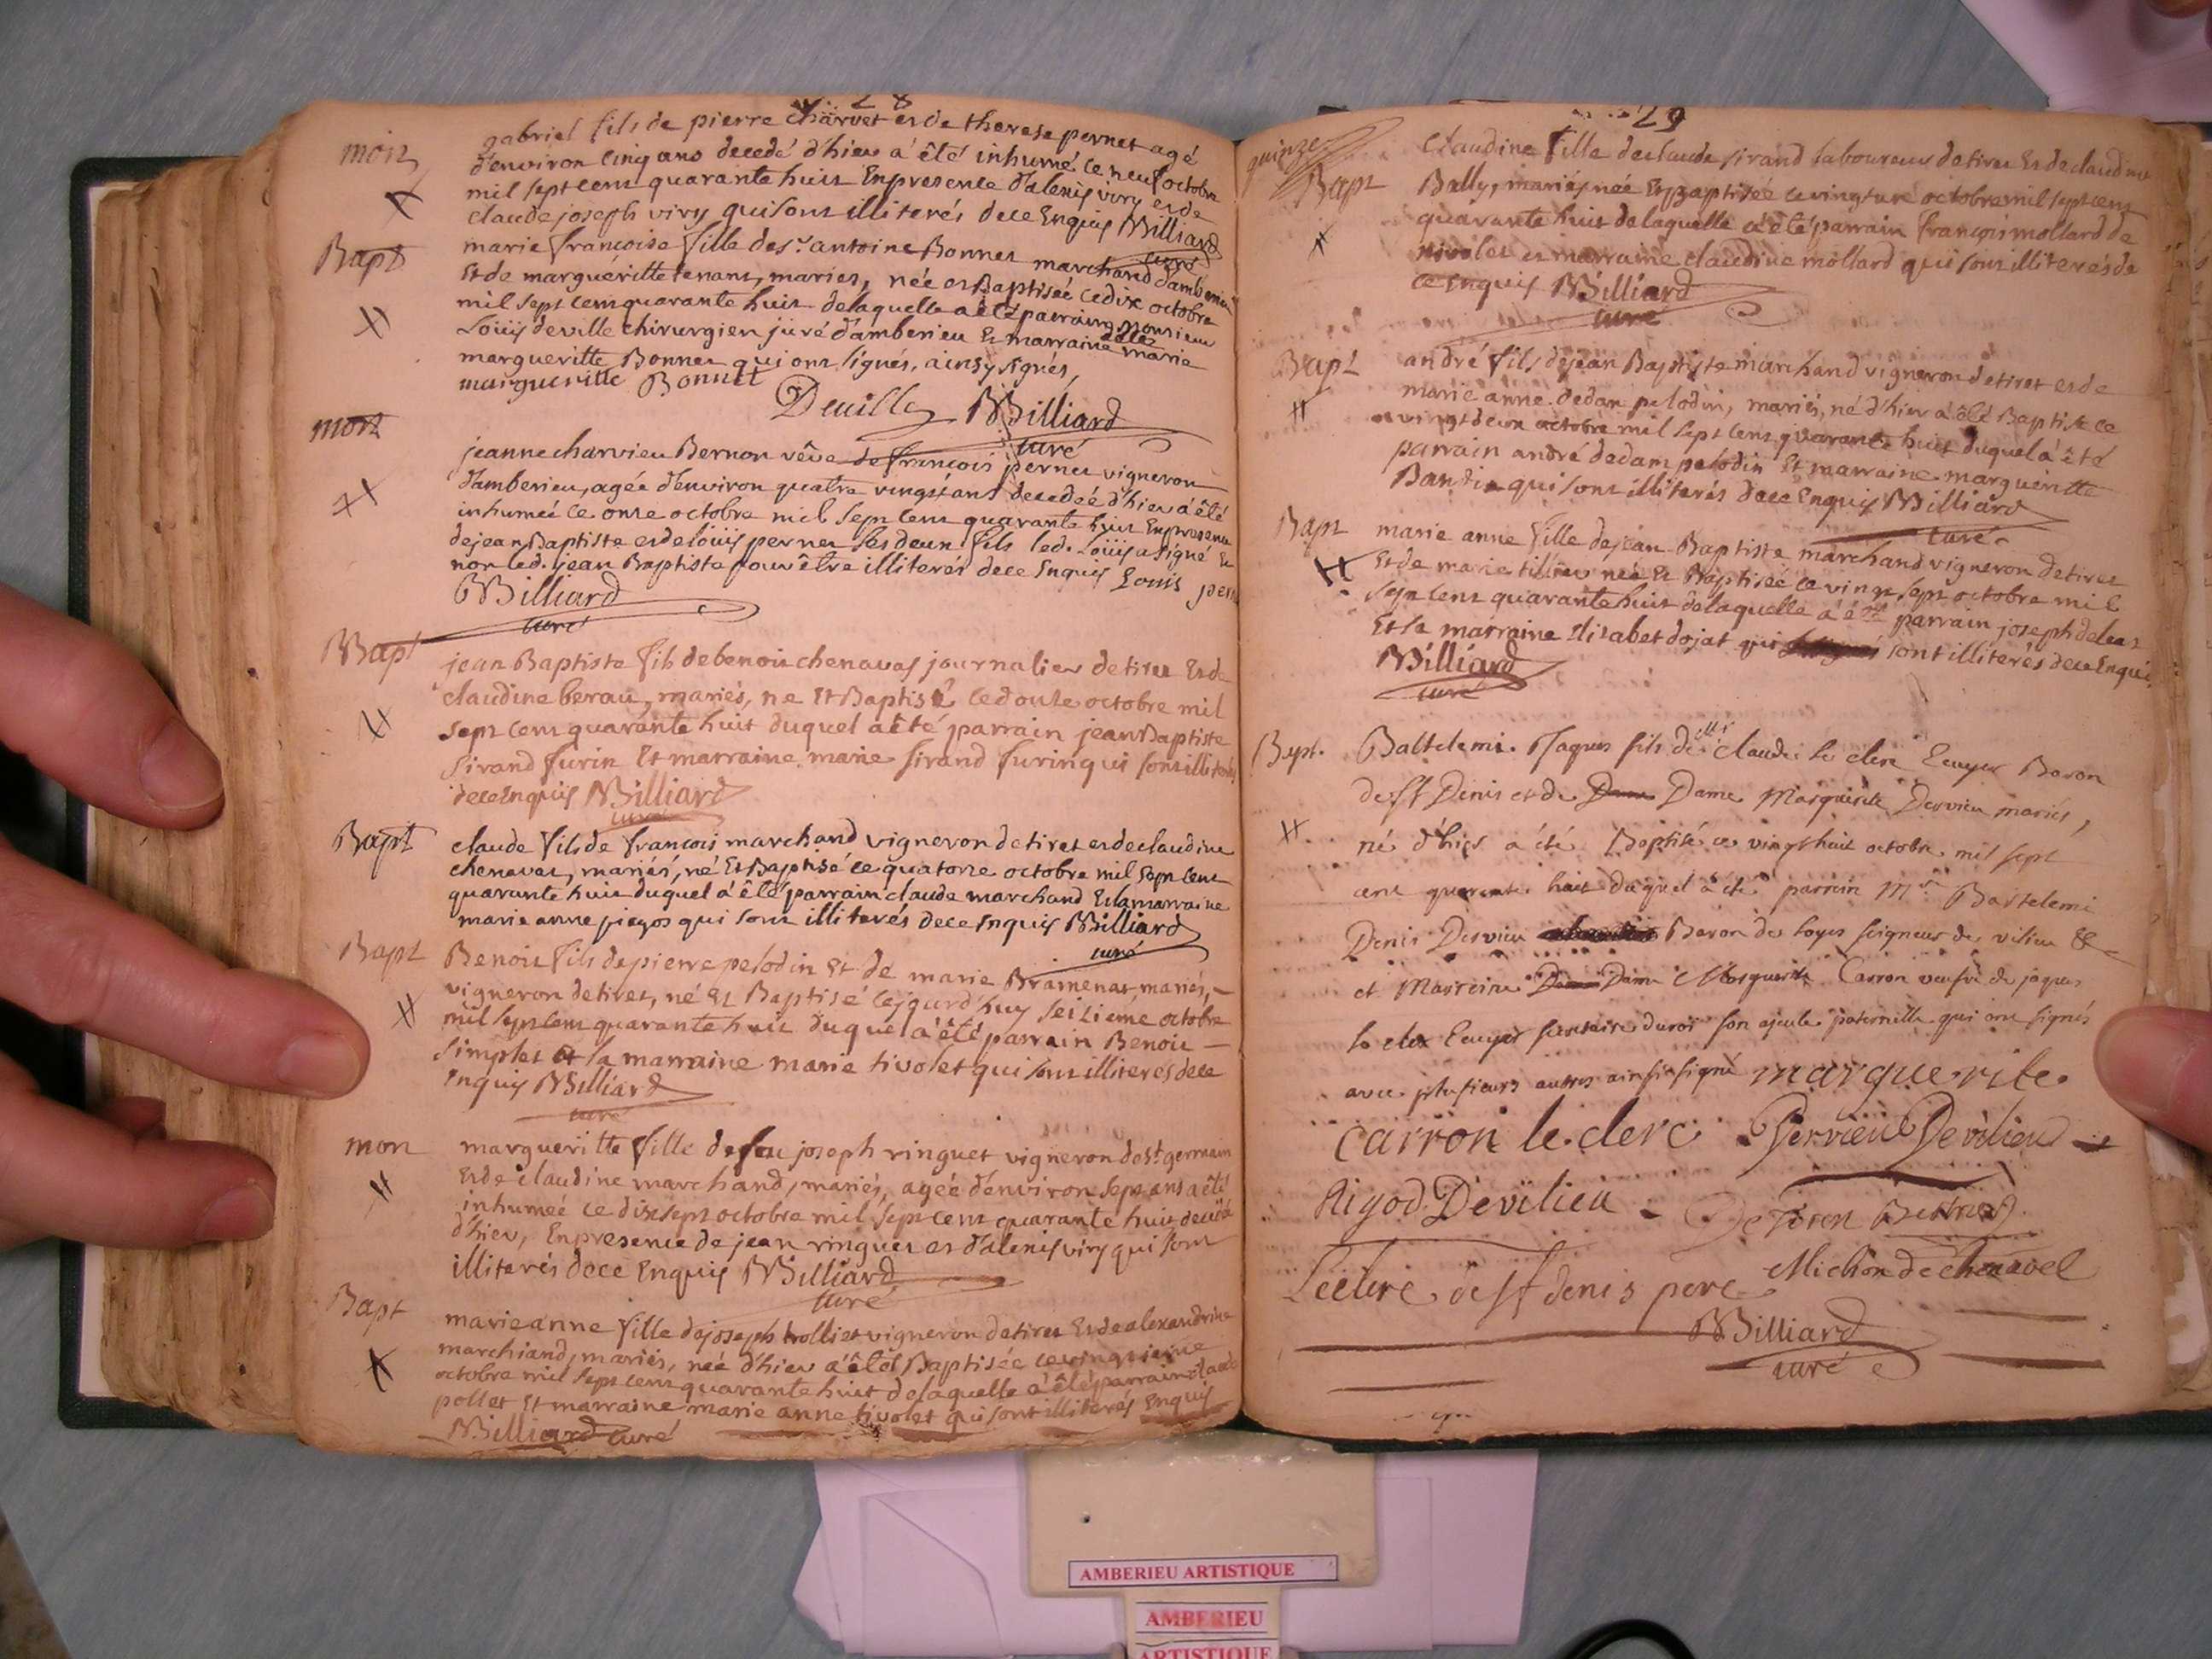 28
mort
gabriel fils de pierre charvet et de therese pernet agé
d'environ cinq ans decedé d'hier a été inhumé ce neuf octobre
mil sept cent quarante huit En presence d'alexis viry et de
claude joseph viry qui sont illiterés de ce Enquis Billiard
curé
Bapt
marie francoise fille de sr antoine Bonnet marchand d'amberieu
Et de margueritte tenant, mariés, née et Baptisée ce dix octobre
mil sept cent quarante huit de laquelle a été parrain monsieur
Louis deville chirurgien juré d'amberieu Et marraine delle marie
margueritte Bonnet qui ont signés, ainsy signés,
margueritte Bonnet
Deville Billiard
curé
mort
jeanne charvieu Bernon vêve de francois pernet vigneron
d'amberieu, agée d'environ quatre vingts ans decedeé d'hier a été
inhumeé ce onze octobre mil sept cent quarante huit En presence
de jean Baptiste et de louis pernet ses deux fils led. Louis a signé Et
non led. jean Baptiste pour être illiterés de ce Enquis Louis pern
Billiard
curé
Bapt
jean Baptiste fils de benoit chenavas journalier de tiret Et de
claudine berau, mariés, ne Et Baptisé ce douze octobre mil
sept cent quarante huit duquel a été parrain jean Baptiste
sirand furin Et marraine marie sirand furin qui sont illiterés
de ce Enquis Billiard
curé
Bapt
claude fils de francois marchand vigneron de tiret et de claudine
chenavas, mariés, né Et Baptisé ce quatorze octobre mil sept cent
quarante huit duquel a été parrain claude marchand Et la marraine
marie anne qui sont illiterés de ce Enquis Billiard
curé
Bapt
Benoit fils de pierre pelodin Et de marie Bramenas, mariés,
vigneron de tiret, né Et Baptisé cejourd'huy seizieme octobre
mil sept cent quarante huit duquel a été parrain Benoit
simplet Et la marraine marie tivolet qui sont illiteres de ce
Enquis Billiard
curé
mort
margueritte fille de feu joseph ringuet vigneron de st germain
Et de claudine marchand, mariés, ageé d'environ sept ans a été
inhumeé ce dix sept octobre mil sept cent quarante huit
d'hier, En presence de jean ringuet et d'alexis viry qui sont
illiterés de ce Enquis Billiard
curé
Bapt
marie anne fille de joseph trolliet vigneron de tiret Et de alexandrine
marchand, mariés, neé d'hier a été Baptisée ce vingtieme
octobre mil sept cent quarante huit de laquelle a été parrain claude
pollet Et marraine marie anne tivolet qui sont illiterés Enquis
Billiard curé
29
quinze
Bapt
Claudine fille de claude sirand laboureur de tiret Et de claudine
Bally, mariés, née Et Baptisée ce vingt un octobre mil sept cent
quarante huit de laquelle a été parrain françois mollard de
nivolet et marraine claudine mollard qui sont illiterés de
ce Enquis Billiard
curé
Bapt
andré fils de jean Baptiste marchand vigneron de tiret et de
marie anne dedan pelodin, mariés, né d'hier a été Baptisé ce
vingt deux octobre mil sept cent quarante huit duquel a été
parrain andré dedam pelodin Et marraine margueritte
qui sont illiterés de ce Enquis Billiard
curé
Bapt
marie anne fille de jean Baptiste marchand vigneron de tiret
Et de marie née Et Baptisée ce vingt sept octobre mil
sept cent quarante huit de laquelle a été parrain joseph
Et la marraine Elizabet dojat qui sont illiterés de ce Enquis
Billiard
curé
Bapt.
Baltelemi Jaques fils de claude le clerc Ecuyer Baron
de St Denis et de Dame Marguerite Dervieu mariés,
né d'hier a été Baptisé ce vingt huit octobre mil sept
cent quarante huit duquel a été parrain Mre Bartelemi
Denis Dervieu Baron de loyes seigneur de vilieu &
et Marreine Dame Marguerite Carron veufve de jaques
le clerc Ecuyer secretaire du roi son ajeule paternelle qui ont signés
avec plusieurs autres ainsi signé marguerite
carron le clerc Dervieu De vilieu
Rigod De vilieu
Leclerc de st denis pere Michon de chenavel
Billiard
curé
AMBERIEU ARTISTIQUE
AMBERIEU
ARTISTIQUE